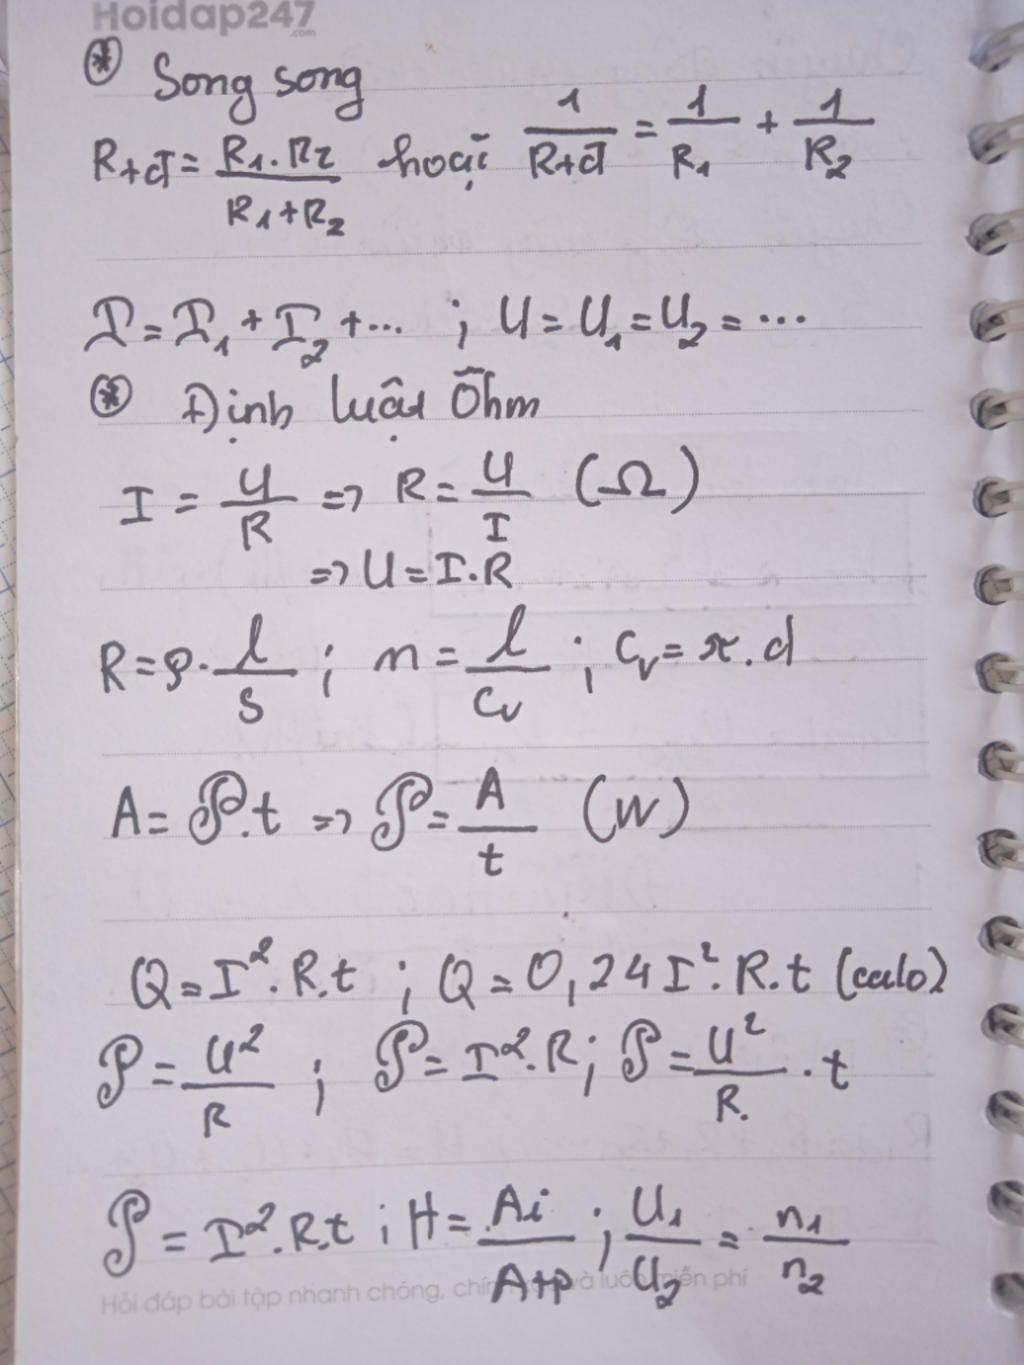 Hoidap247
.com
⊛ Song song
Rtđ = R1.R2 / R1+R2 hoặc 1/Rtđ = 1/R1 + 1/R2
I = I1 + I2 + ... ; U = U1 = U2 = ...
⊛ Định luật Ôhm
I = U/R => R = U/I (Ω)
=> U = I.R
R = ρ. l/S ; n = l/Cv ; Cv = π.d
A = P.t => P = A/t (W)
Q = I². R.t ; Q = 0,24 I². R.t (calo)
P = U²/R ; P = I². R ; P = U²/R. . t
P = I². R.t ; H = Ai/Atp ; U1/U2 = n1/n2
Hỏi đáp bài tập nhanh chóng, chính và luôn miễn phí